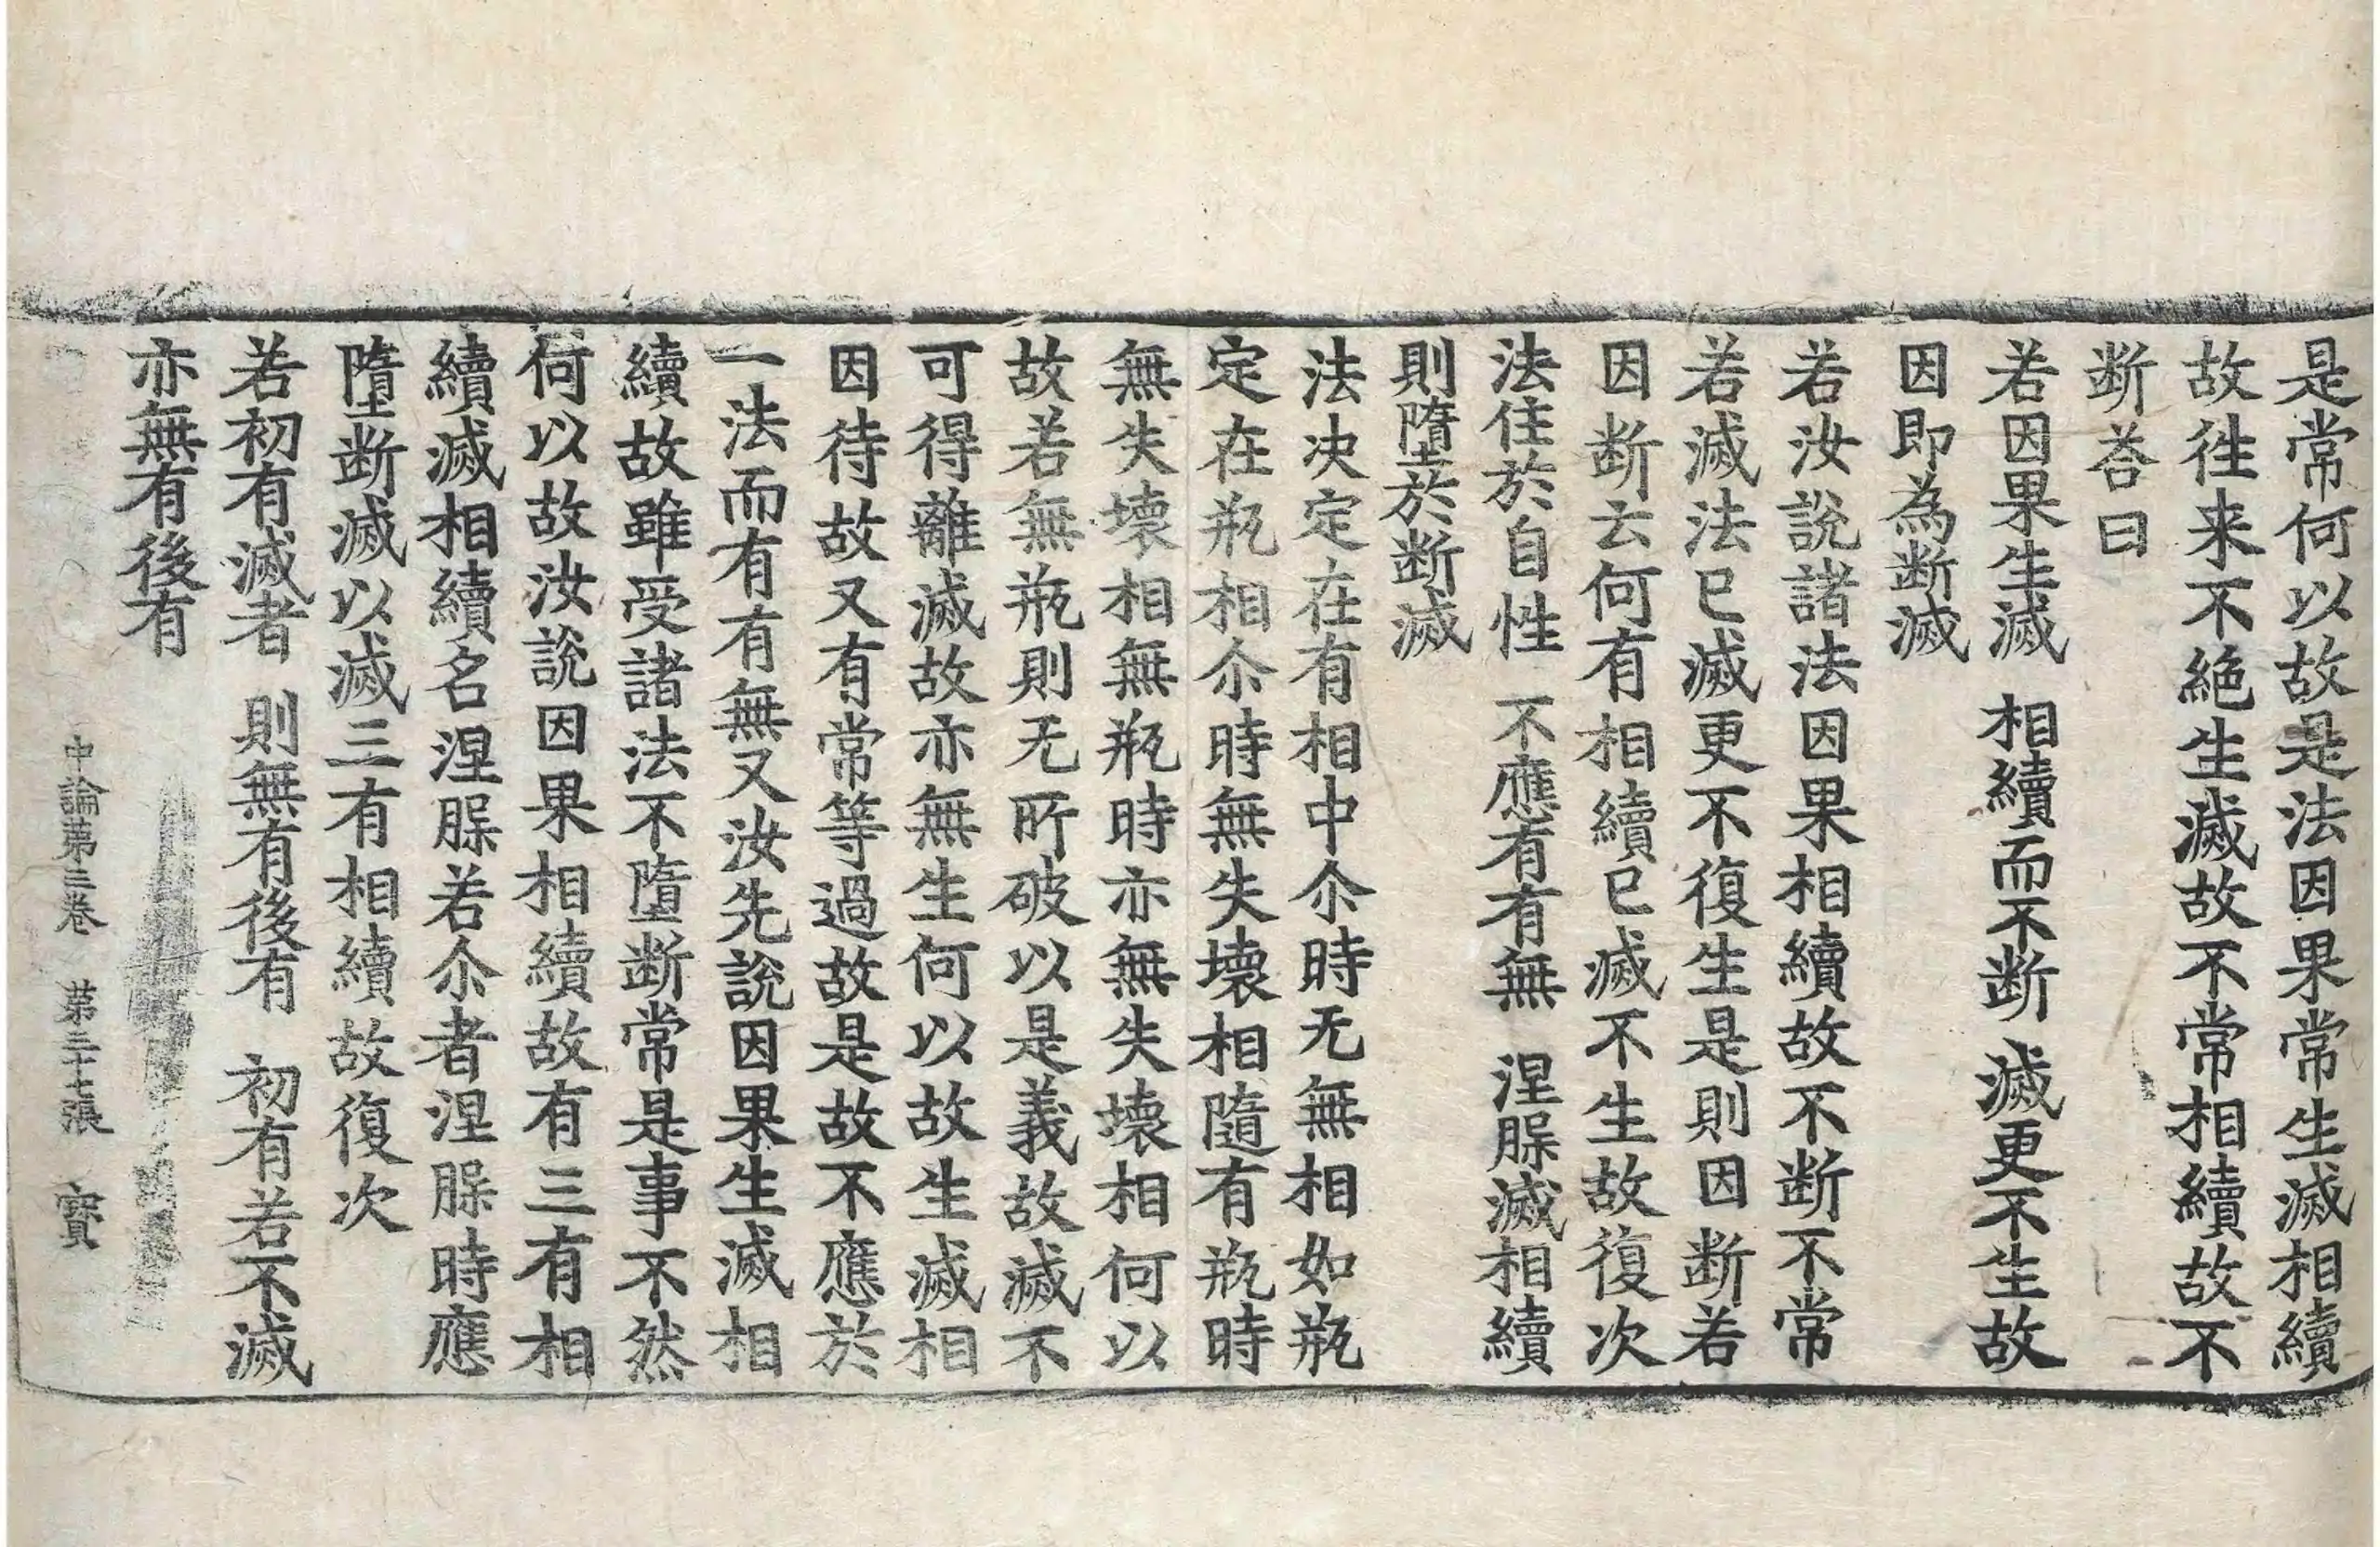 是常何以故是法因果常生滅相續
故徃来不絶生滅故不常相續故不
断荅曰
若因果生滅　相續而不断　滅更不生故
因即為断滅
若汝說諸法因果相續故不断不常
若滅法已滅更不復生是則因断若
因断云何有相續已滅不生故復次
法住於自性　不應有有無　涅䏶滅相續
則墮於断滅
法决定在有相中尒時无無相如瓶
定在瓶相尒時無失壞相隨有瓶時
無失壞相無瓶時亦無失壞相何以
故若無瓶則无所破以是義故滅不
可得離滅故亦無生何以故生滅相
因待故又有常等過故是故不應於
一法而有有無又汝先說因果生滅相
續故雖受諸法不墮断常是事不然
何以故汝説因果相續故有三有相
續滅相續名涅䏶若尒者涅䏶時應
墮断滅以滅三有相續故復次
若初有滅者　則無有後有　初有若不滅
亦無有後有
中論第三卷　第二十七張　寳